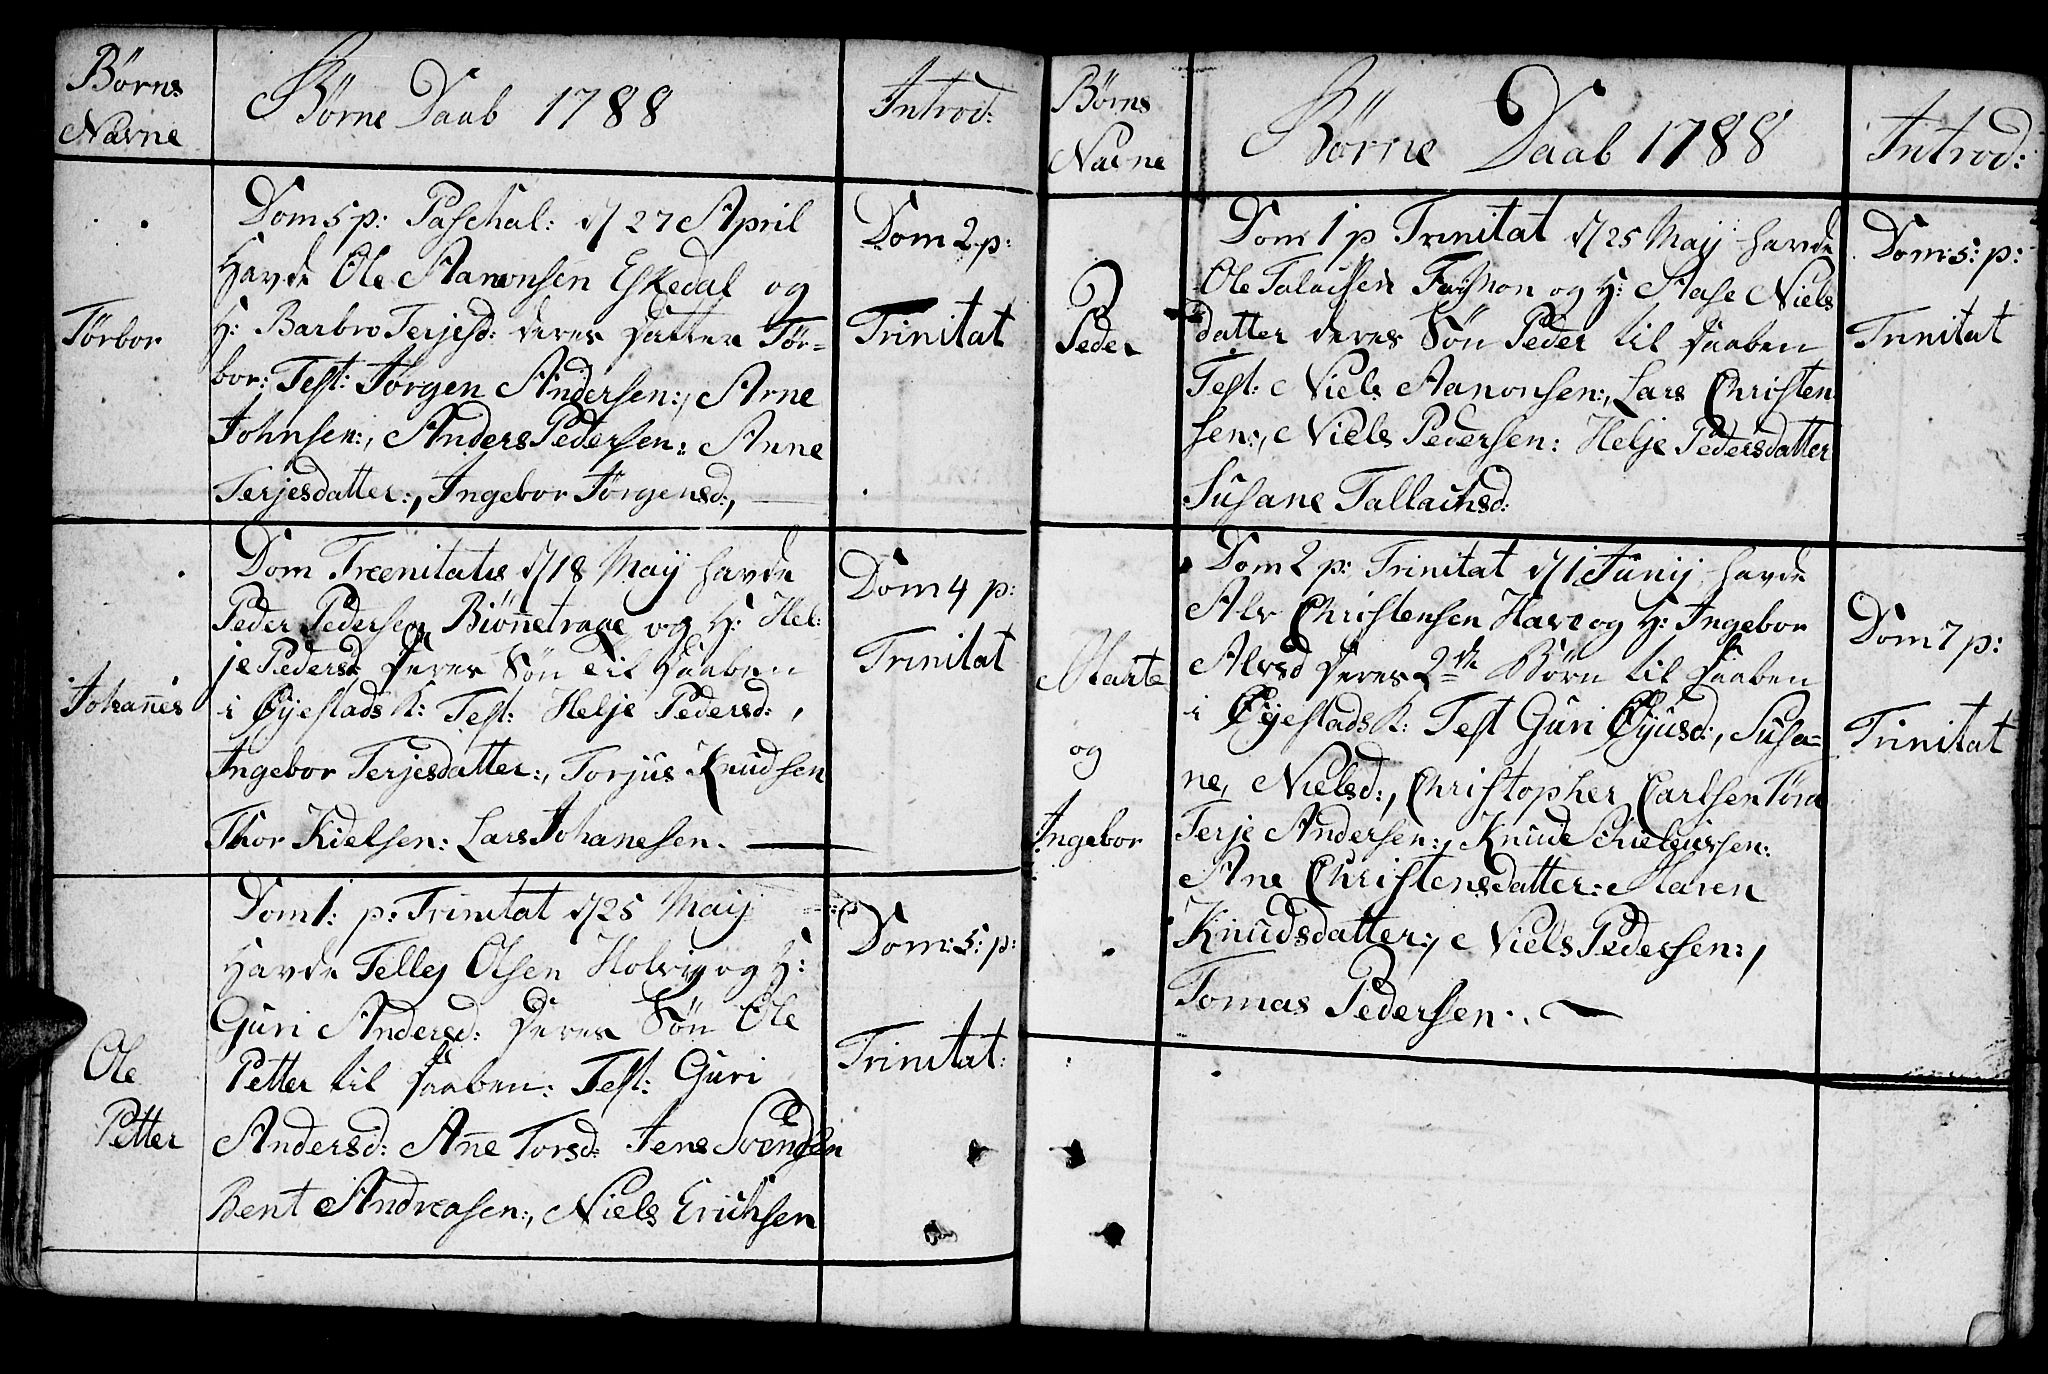 Børns
Navne
Børne Daab 1788
Introd:
Tørbor
Dom 5 p: Paschal: d 27 April
Havde Ole Aanonsen Eskedal og
H: Barbro Terjesd: deres datter Tør-
bor: Test: Jørgen Andersen:, Arne
Johnsen:, Anders Pedersen: Anne
Terjesdatter:, Ingebor Jørgensd:,
Dom 2 p:
Trinitat
Johannes
Dom Treenitatis d 18 Maij havde
Peder Pedersen Biønnetraae og H: Hel:
je Pedersd deres Søn til Daaben
i Øyestads K: Test: Helje Pedersd:,
Ingebor Terjesdatter:, Torjus Knudsen
Thor Kielsen: Lars Johanesen.
Dom 4 p:
Trinitat
Ole
Petter
Dom 1: p: Trinitat d 25 Maij
Havde Tellej Olsen Holvig og H:
Guri Andersd: deres Søn Ole
Petter til Daaben: Test: Guri
Andersd: Ane Torsd: Jens Svendsen
Bent Andreasen:, Niels Erichsen
Dom: 5: p:
Trinitat:
Børns
Navne
Børne Daab 1788
Introd:
Peder
Dom 1 p Trinitat d 25 Maij havde
Ole og H: Aase Niels
datter deres Søn Peder til Daaben
Test: Niels Aanonsen:, Lars Christen
sen:, Niels Pedersen: Helje Pedersdatter
Susane Tallachsd:
Dom: 5: p:
Trinitat
Marte
og
Ingebor
Dom 2 p: Trinitat d 1 Junij havde
Alv Christensen Have og H: Ingebor
Alvsd deres 2de Børn til Daaben
i Øyestads K: Test Guri Øyusd:, Susa=
ne, Nielsd:, Christopher Carlsen
Terje Andersen:, Knud
Ane Christensdatter: Maren
Knudsdatter:, Niels Pedersen:,
Tomas Pedersen.
Dom 7 p:
Trinitat